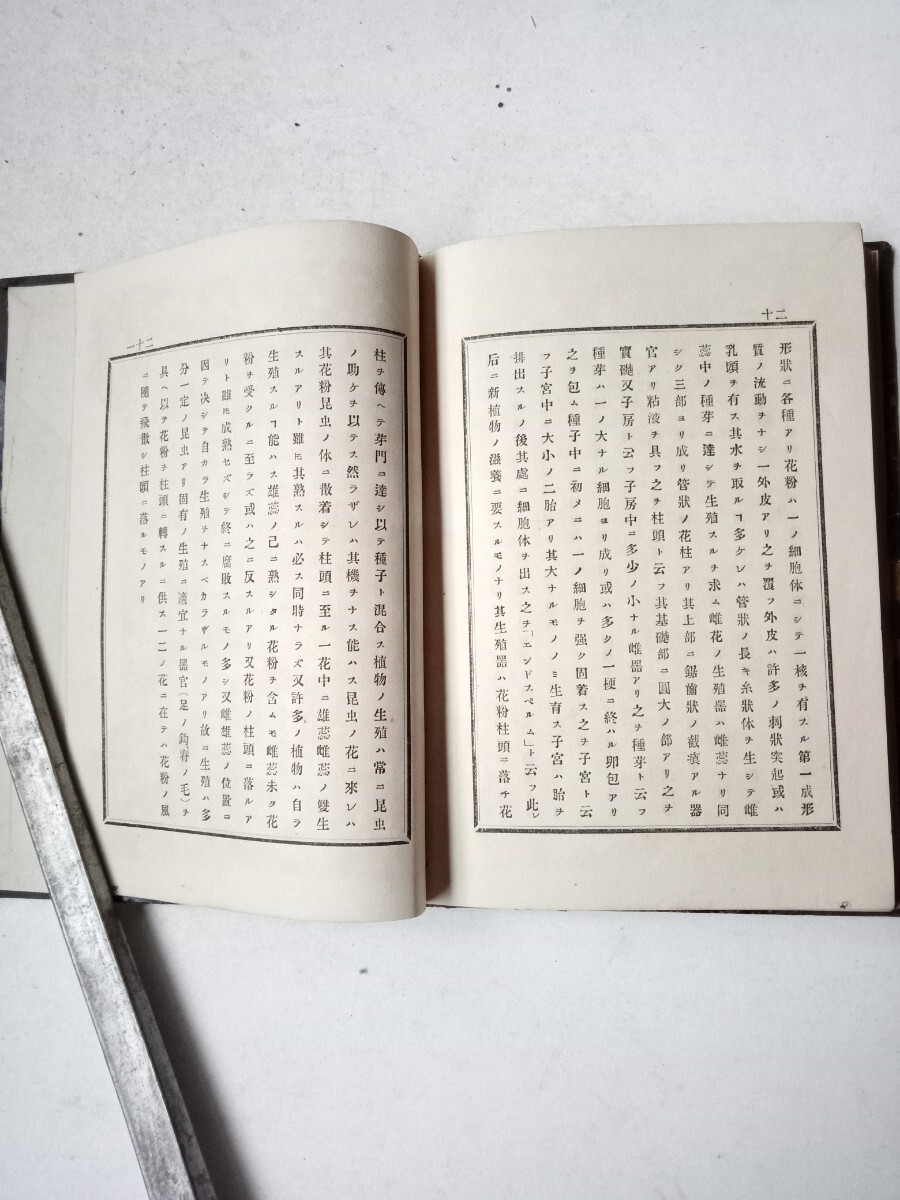 二十
形狀ニ各種アリ花粉ハ一ノ細胞体ニシテ一核チ有スル第一成形
質ノ流動チナシ一外皮アリ之チ覆フ外皮ハ許多ノ弱狀突起或ハ
乳頭チ有ス其水チ取ルヿ多ケレハ管狀ノ長キ糸狀体チ生シテ雌
蕊中ノ種芽ニ達シテ生殖スルチ求ム雌花ノ生殖器ハ雌蕊ナリ同
シク三部ヨリ成リ管狀ノ花柱アリ其上部ニ鋸齒狀ノ截痕アル器
官アリ粘液チ具フ之チ柱頭ト云フ其基礎部ニ圓大ノ部アリ之チ
實礎又子房ト云フ子房中ニ多少ノ小ナル雌器アリ之チ種芽ト云フ
種芽ハ一ノ大ナル細胞ヨリ成リ或ハ多クノ一梗ニ終ハル卵包アリ
之チ包ム種子中ニ初メニハ一ノ細胞チ强ク固着ス之チ子宮ト云
フ子宮中ニ大小ノ二胎アリ其大ナルモノノミ生育ス子宮ハ胎チ
排出スルノ後其處ニ細胞体チ出ス之チ「エンドスペルム」ト云フ此レ
后ニ新植物ノ滋養ニ要スルモノナリ其生殖器ハ花粉柱頭ニ落チ花
二十一
柱チ傳ヘテ芽門ニ達シ以テ種子ト混合ス植物ノ生殖ハ常ニ昆虫
ノ助ケチ以テス然ラザレハ其機チナス能ハス昆虫ノ花ニ來レハ
其花粉昆虫ノ体ニ散着シテ柱頭ニ至ル一花中ニ雄蕊雌蕊ノ雙生
スルアリト雖𪜈其熟スルハ必ス同時ナラズ又許多ノ植物ハ自ラ
生殖スルヿ能ハス雄蕊ノ己ニ熟シタル花粉チ含ムモ雌蕊未タ花
粉チ受クルニ至ラズ或ハ之ニ反スルアリ又花粉ノ柱頭ニ落ルア
リト雖𪜈成熟セズシテ終ニ腐敗スルモノ多シ又雌雄蕊ノ位置ニ
因テ决シテ自カラ生殖チナスベカラザルモノアリ故ニ生殖ハ多
分一定ノ昆虫アリ固有ノ生殖ニ適宜ナル器官（足ノ鈎脊ノ毛）チ
具ヘ以テ花粉チ柱頭ニ轉スルニ供ス一二ノ花ニ在テハ花粉ノ風
ニ隨テ飛散シ柱頭ニ落ルモノアリ